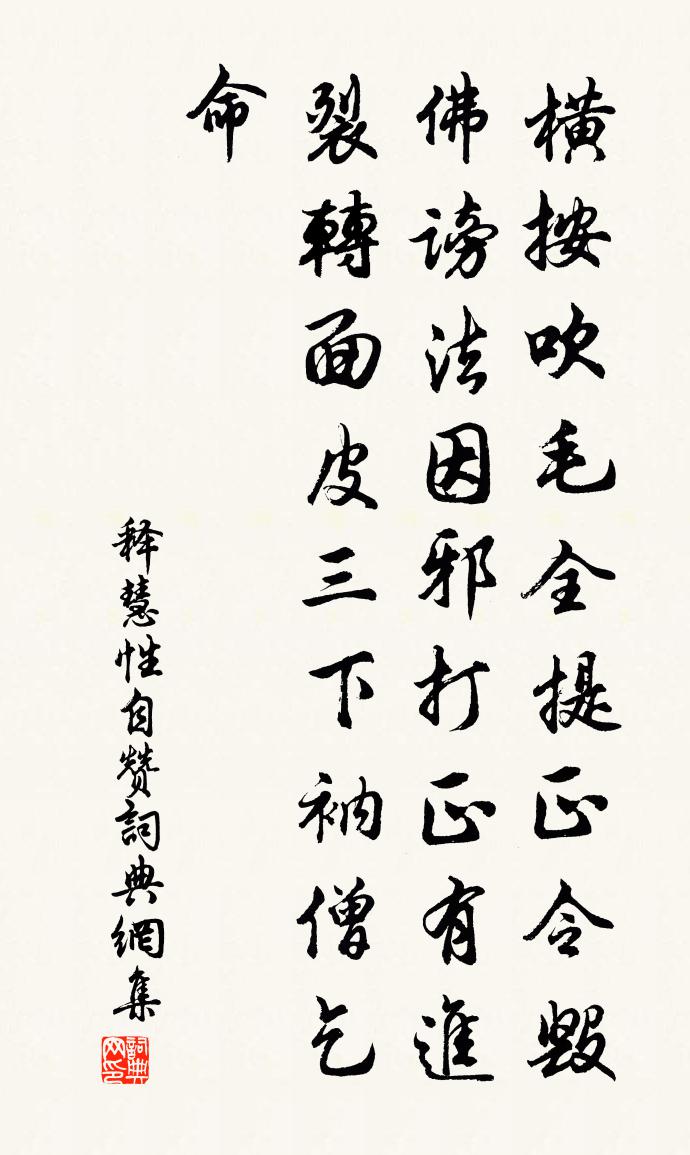 橫按吹毛全提正令毀
佛謗法因邪打正有進
裂轉面皮三下衲僧乞
命
释慧性自赞詞典網集
詞典网印